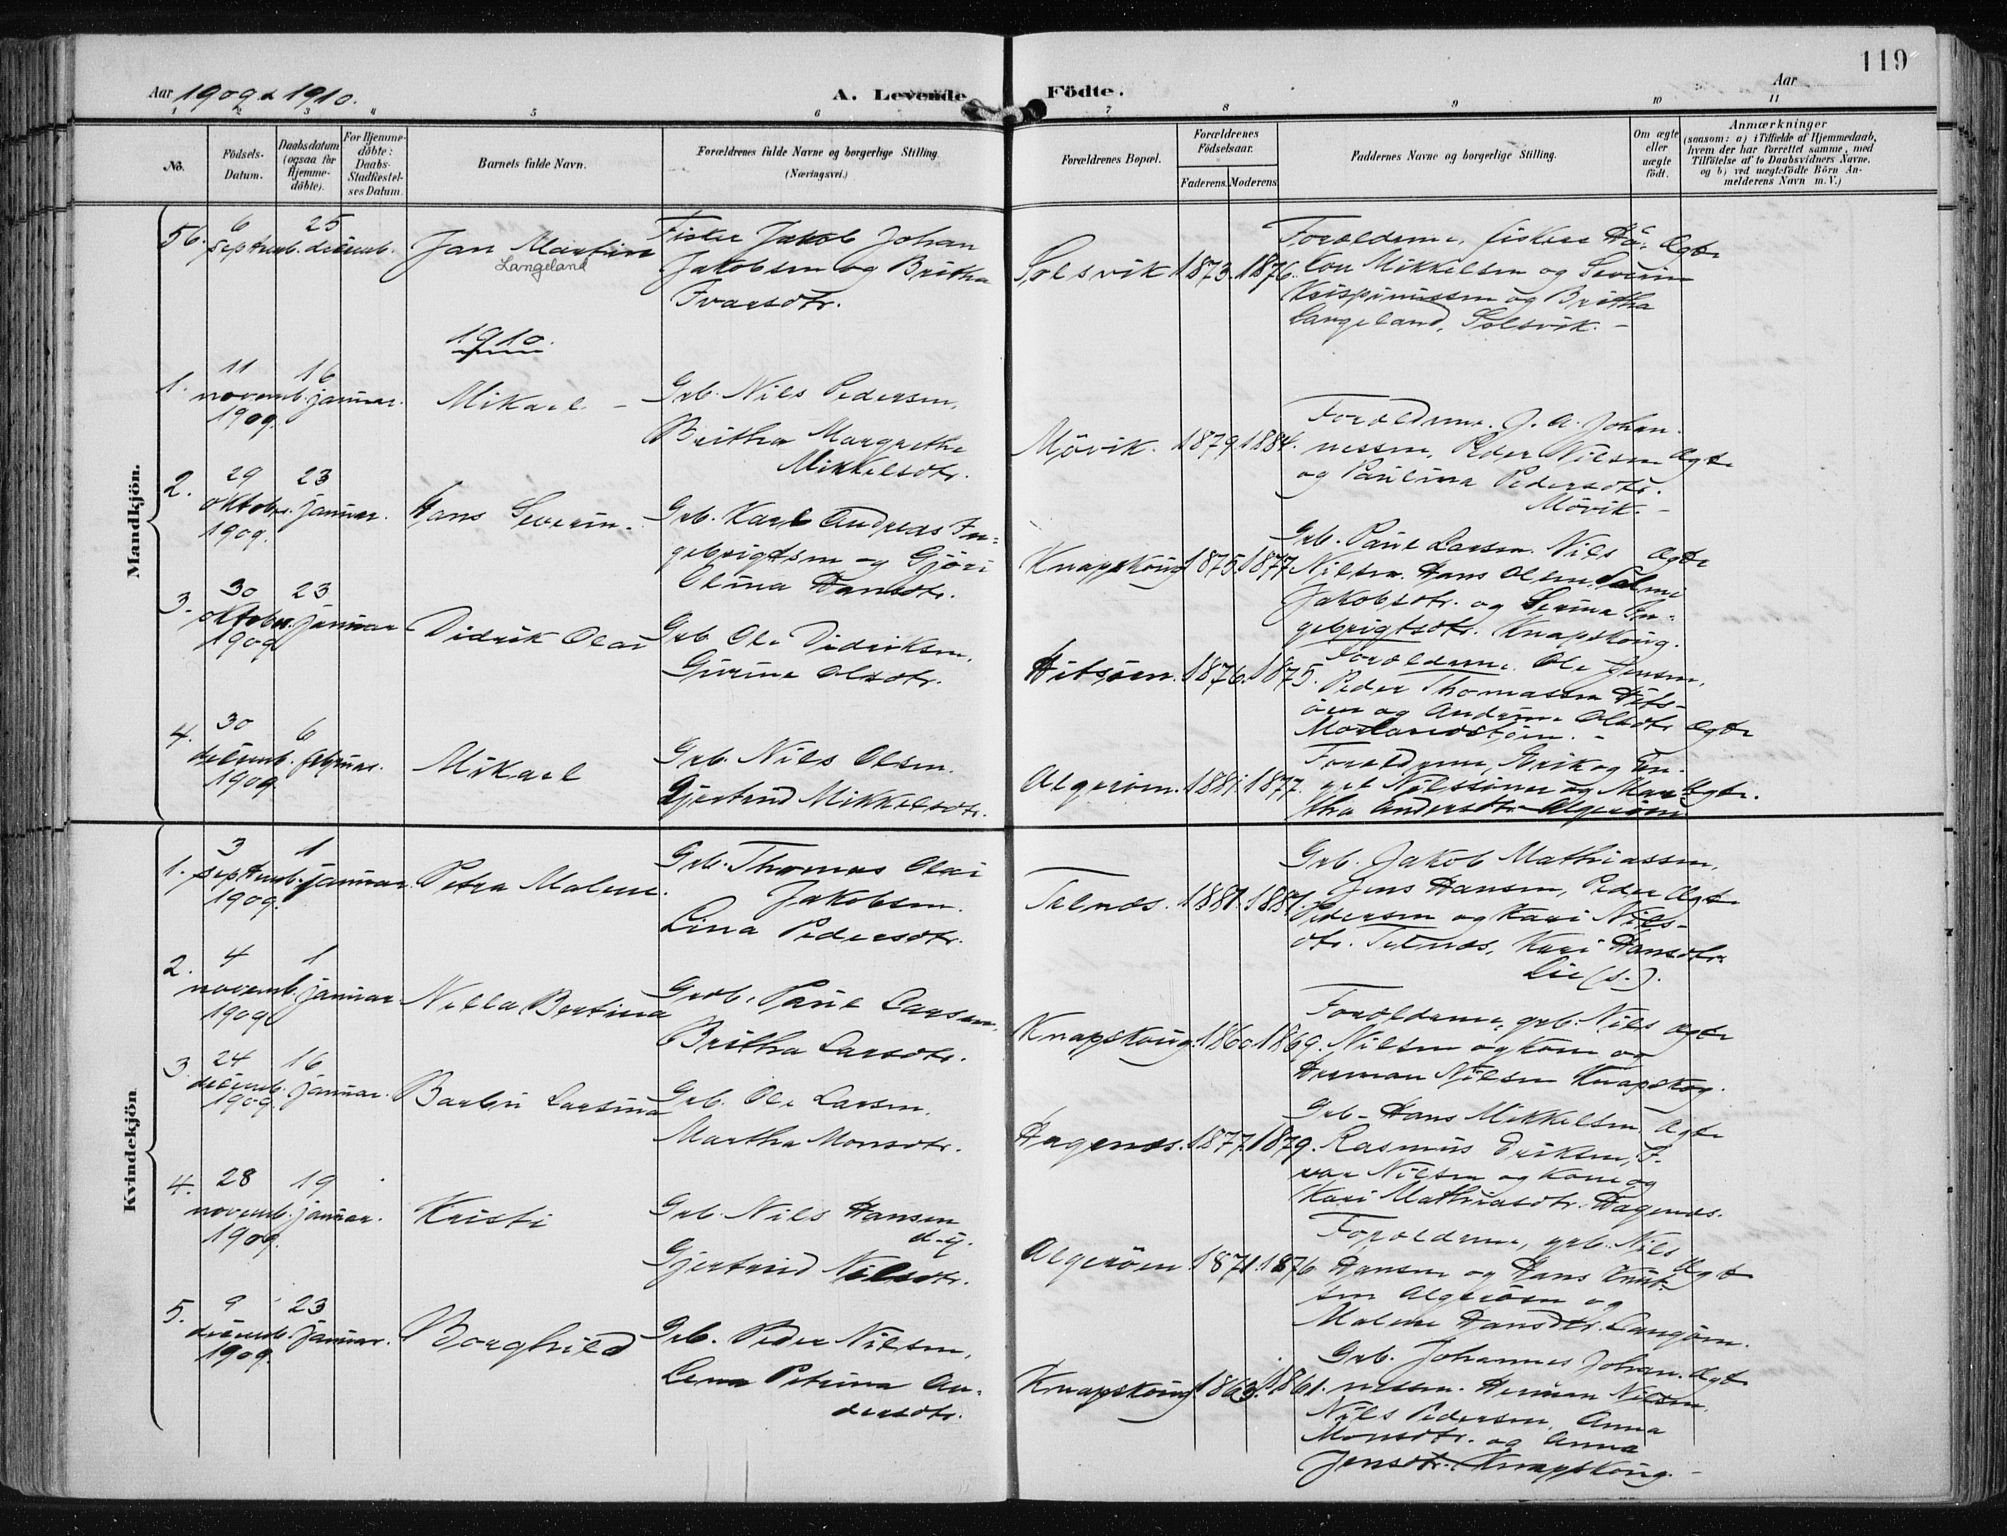 119
Aar 1909 & 1910.
A. Levende Födte.
Aar
1 2 3 4 5 6 7 8 9 10 11
No.
Födsels-Datum.
Daabsdatum (ogsaa for Hjemme-döbte).
For Hjemme-döbte: Daabs-Stadfæstel-ses Datum.
Barnets fulde Navn.
Forældrenes fulde Navne og borgerlige Stilling. (Næringsvei.)
Forældrenes Bopæl.
Forældrenes Födselsaar.
Faderens. Moderens.
Faddernes Navne og borgerlige Stilling.
Om ægte eller uægte födt.
Anmærkninger
(saasom: a) i Tilfælde af Hjemmedaab,
hvem der har forrettet samme, med
Tilföielse af to Daabsvidners Navne,
og b) ved uægtefödte Börn An-
melderens Navn m. V.)
Mandkjön.
56. 6 septemb. 25 decemb. Jan Martin
Langeland
Fisker Jakob Johan
Jakobsen og Britha
Ivarsdtr.
Solsvik 1873. 1876.
Forældrene, fisker Haa-
kon Mikkelsen og Severin
Krispinussen og Britha
Langeland, Solsvik. -
Ægte
1910.
1. 11 novemb. 1909. 16 januar. Mikael -
Grb. Nils Pedersen,
Britha Margrethe
Mikkelsdtr.
Mövik. 1879. 1884.
Forældrene. J. A. Johan-
nessen, Peder Nilsen
og Paulina Pedersdtr.
Mövik. -
Ægte
2. 29 oktober. 1909. 23 januar. Hans Severin.
Grb. Karl Andreas In-
gebrigtsen og Gjöri
Olina Hansdtr.
Knapskoug 1875. 1877.
Grb. Paul Larsen. Nils
Nilsen. Hans Olsen,
Jakobsdtr. og Serina In-
gebrigtsdtr. Knapskoug.
Ægte
3. 30 oktober. 1909 23 januar Didrik Olai
Grb Ole Didriksen,
Gurine Olsdtr.
Hitsöen. 1876. 1875.
Forældrene. Ole Jensen,
Peder Thomassen Hits-
öen og Andrine Olsdtr
Ægte
4. 30 decemb. 1909. 6 februar. Mikael
Grb. Nils Olsen.
Gjertrud Mikkelsdtr.
Algeröen. 1881. 1877.
Forældrene, Erik og En-
gel Nilssöner og Mar-
tha Andersdtr. Algeröen
Ægte.
Kvindekjön
1. 3 septemb. 1909. 1 januar. Petra Malene.
Grb. Thomas Olai
Jakobsen.
Lina Pedersdtr.
Telnæs. 1881. 1881.
Grb. Jakob Mathiassen,
Jens Hansen, Peder
Pedersen og Kari Nils-
dtr. Telnæs, Kari Hansdtr.
Lie (s.).
Ægte
2. 4 novemb. 1909. 1 januar Nella Bertina
Grb. Paul Larsen,
Britha Larsdtr.
Knapskoug. 1860 1869.
Forældrene, grb. Nils
Nilsen og kone og
Herman Nilsen Knapskog.
Ægte
3. 24 decemb. 1909. 16 januar. Barbri Larsina
Grb. Ole Larsen.
Martha Monsdtr.
Hagenæs. 1877. 1879.
Grb. Hans Mikkelsen,
Rasmus Eriksen, I-
var Nilsen og kone og
Kari Mathiasdtr. Hagenæs.
Ægte
4. 28 novemb. 1909. 19 januar. Kristi
Grb. Nils Hansen
d. y.
Gjertrud Nilsdtr.
Algeröen 1871. 1876
Forældrene, grb. Nils
Hansen og Hans Knut-
sen Algeröen og
Malene Hansdtr. Langöen.
Ægte
5. 9 decemb. 1909. 23 januar. Borghild
Grb. Peder Nilsen,
Lena Petrina An-
dersdtr.
Knapskoug. 1863. 1861.
Grb. Johannes Johan-
nessen. Herman Nilsen,
Nils Pedersen, Anna
Monsdtr. og Anna
Jensdtr. Knapskoug. -
Ægte